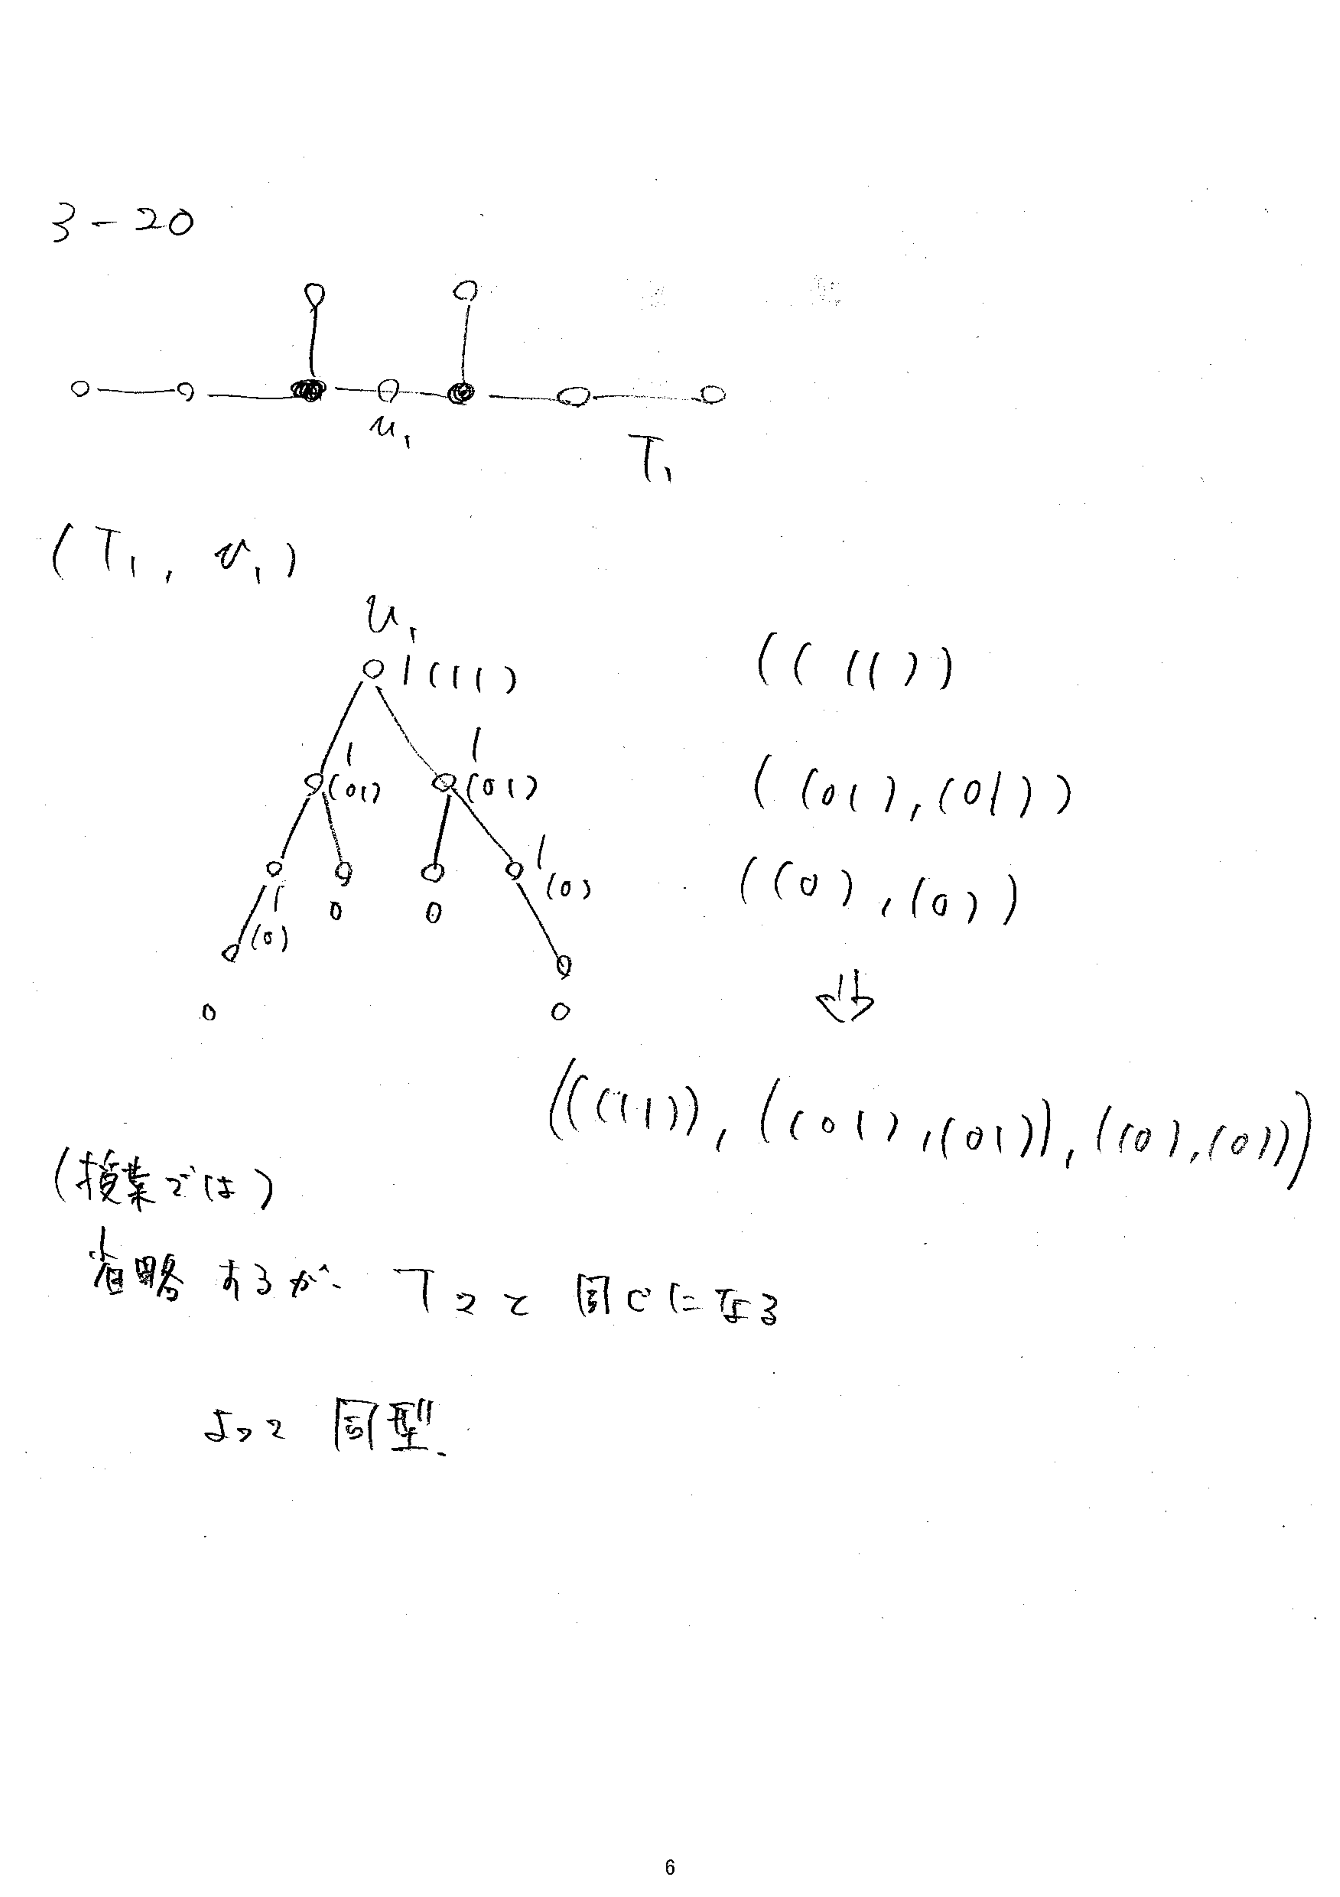 3-20
u₁
T₁
(T₁, v₁)
u₁
1(11)
1 1
(01) (01)
1 0 0 1
(0) (0)
0 0
((11))
((01),(01))
((0),(0))
⇓
(((11)),((01),(01)),((0),(0)))
(授業では)
省略するが T₂と同じになる
よって 同型.
6